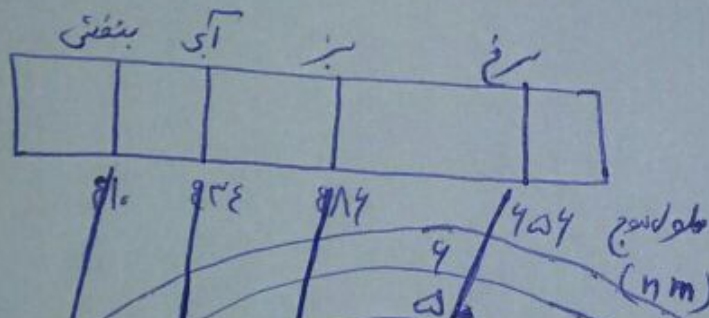 بنفش آبی سبز سرخ
۴۱۰ ۴۳۴ ۴۸۶ ۶۵۶ طول موج
(nm)
۶
۵